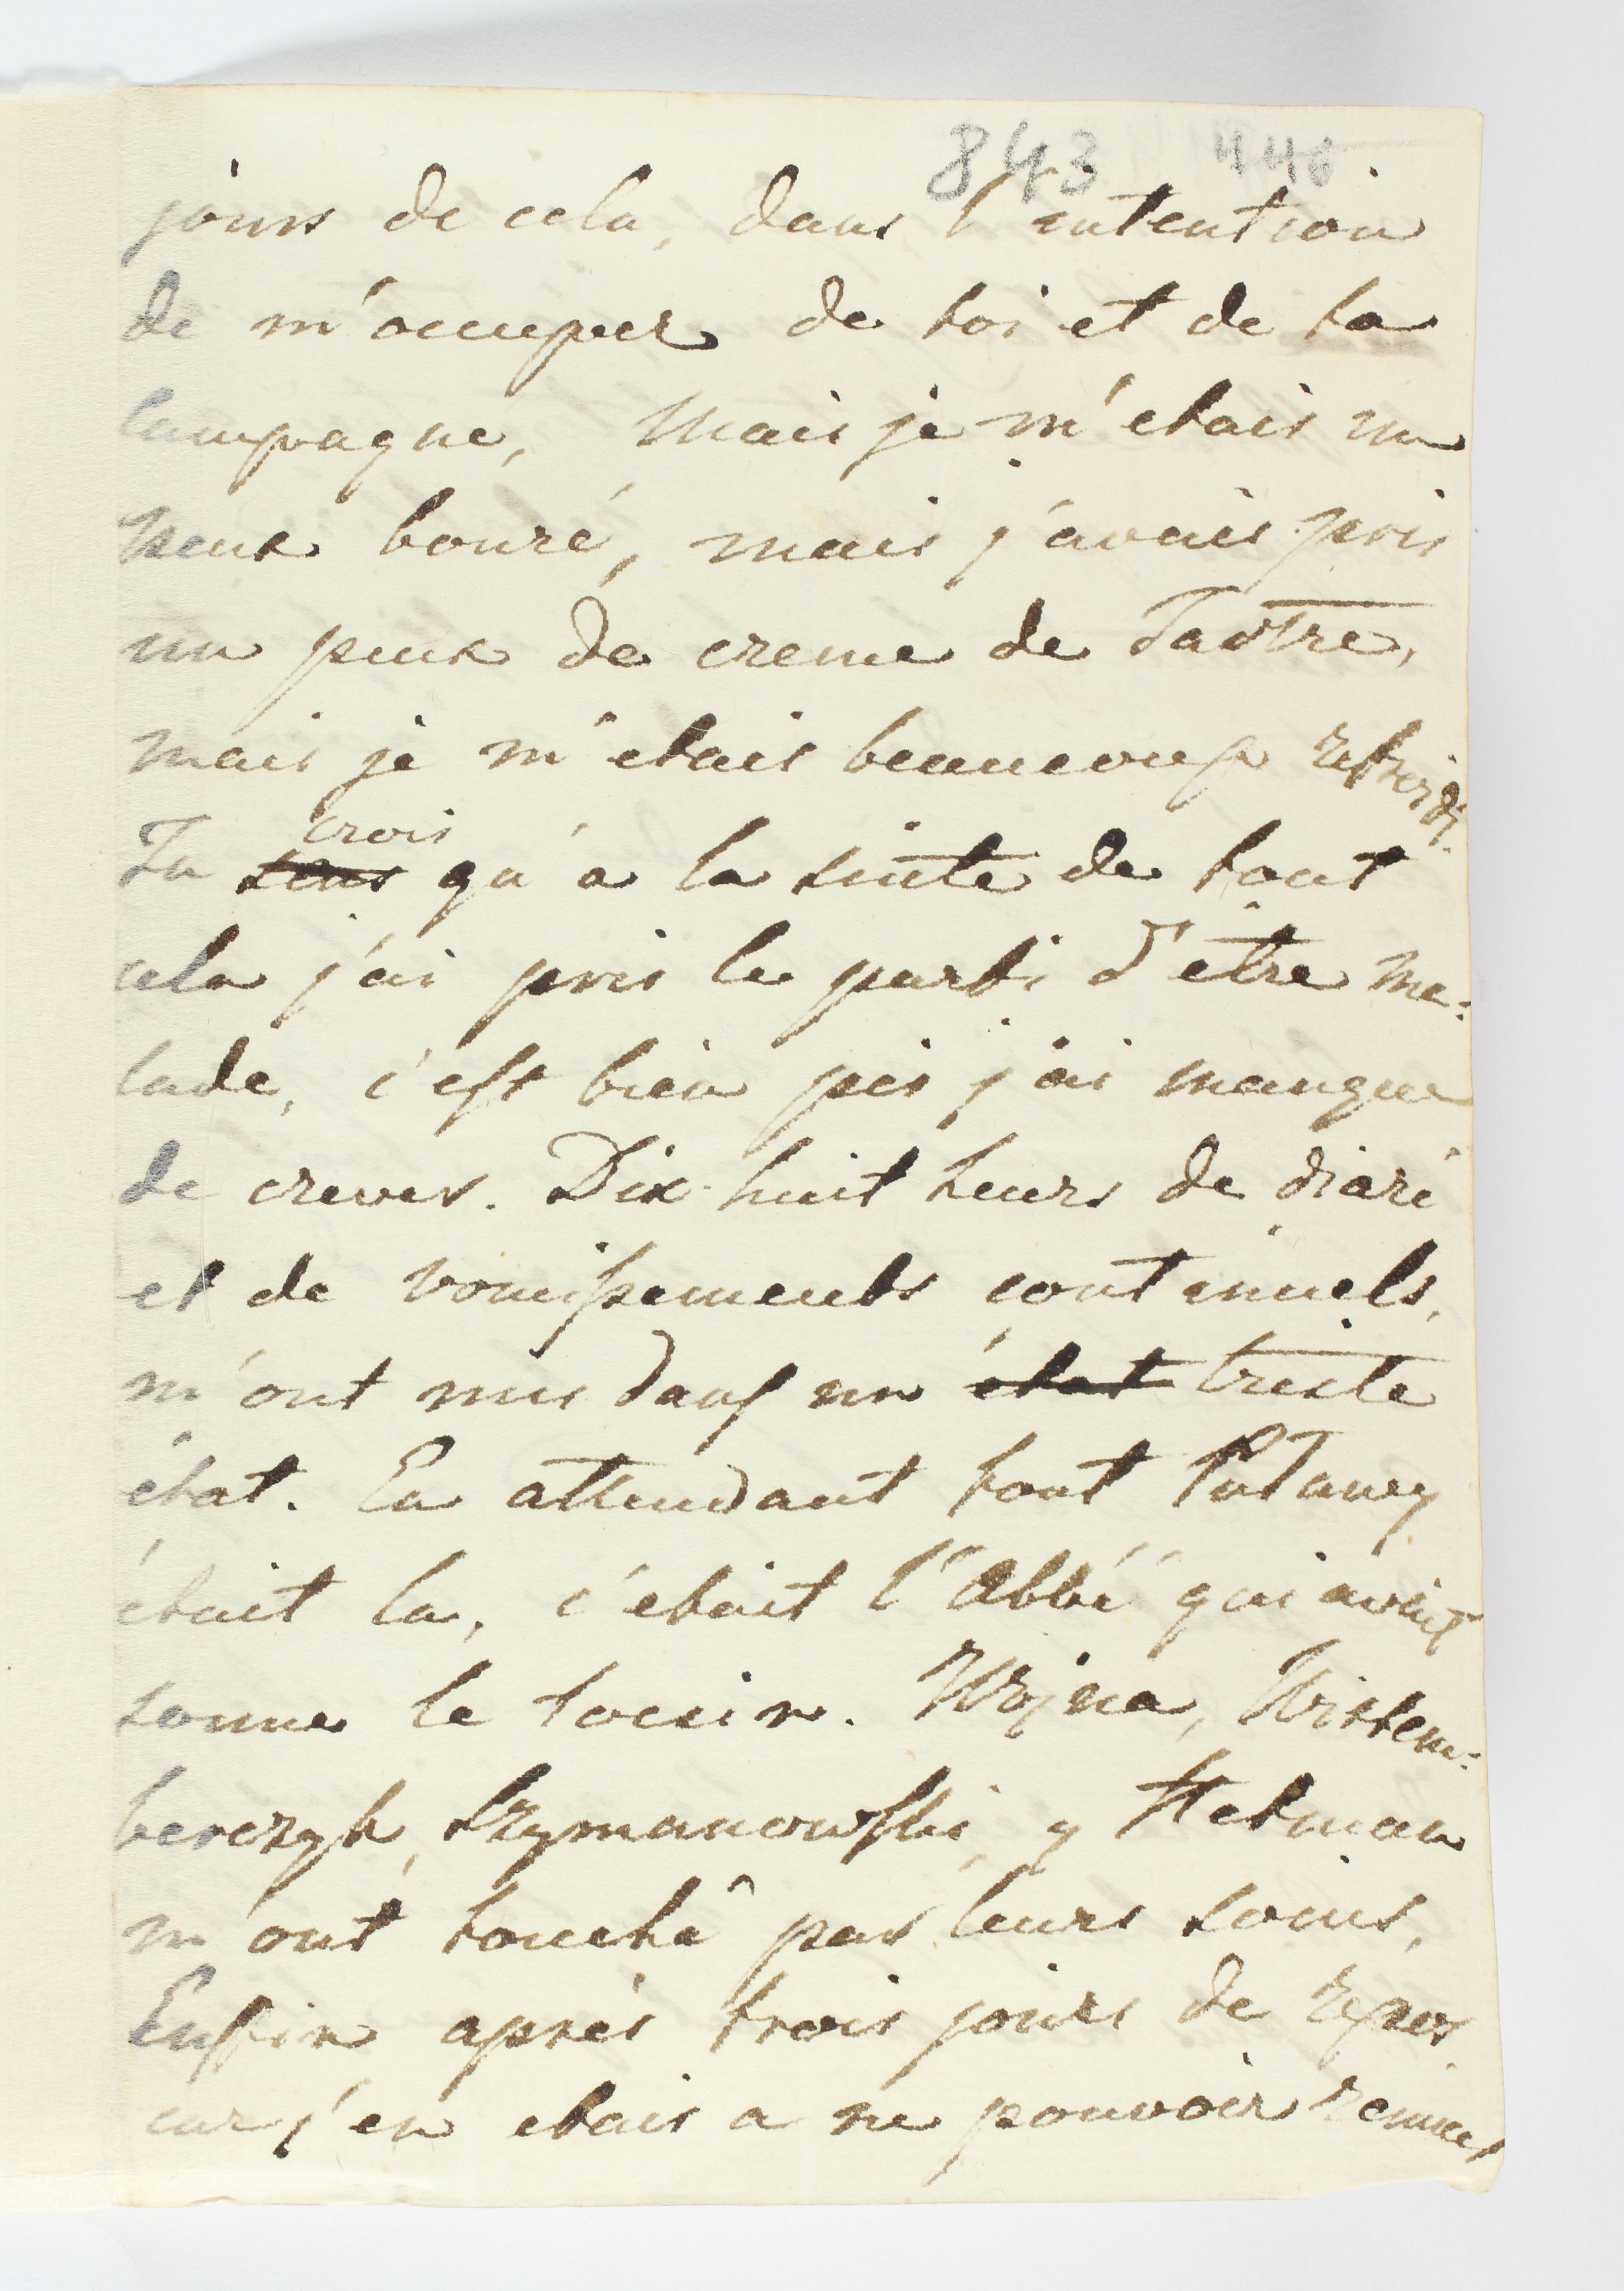 843 446
jours de cela, dans l'intention
de m'occuper de toi et de ta
Campagne, Mais je m'etais un
peux bouré, mais j'avais pris
un peux de creme de Tartre,
mais je m'etais beaucoup refroidi.
crois
Tu sens qu'a la suite de tout
cela j'ai pris le parti d'etre ma:
lade, c'est bien pis j'ai manque
de crever. Dix-huit heurs de diaré
et de vomissements continuels,
m'ont mis dans un état triste
état. En attendant tout Pulawy
était la, c'etait l'Abbé qui avait
sonne le tocsin. Wojna, Wirtem:
berczyk, Szymanowski, y Hetman
m'ont touchê par leurs soins,
Enfin aprés trois jours de repos
car j'en etais a ne pouvoir remuer